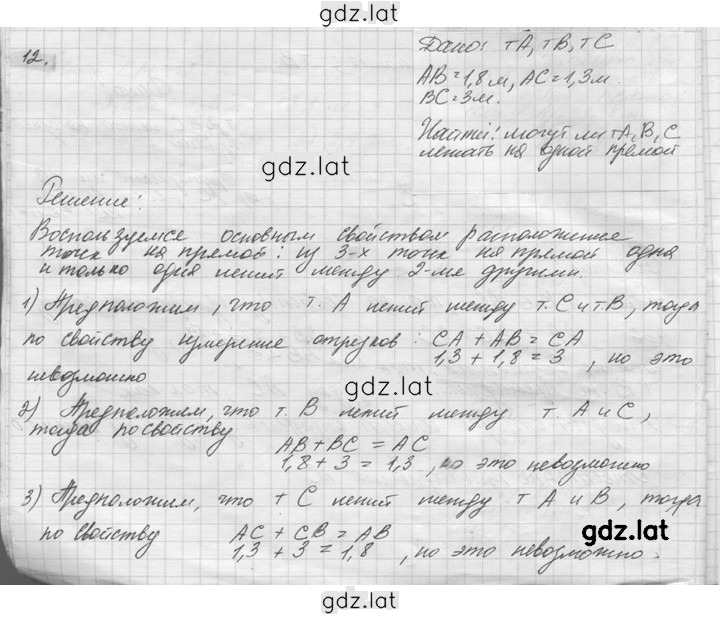 gdz.lat
12.
Дано: тА, тВ, тС
АВ=1,8м, АС=1,3м.
ВС=3м.
Найти: могут ли тА, В, С
лежать на одной прямой
gdz.lat
Решение:
Воспользуемсе основным свойством расположение
точк на прямой: из 3-х точк на прямой одна
и только одна лежит между 2-ме другими.
1) Предположим, что т. А лежит между т. С и т.В, тогда
по свойству измерение отрезков: СА + АВ = СА
1,3 + 1,8 = 3, но это
невозможно
gdz.lat
2) Предположим, что т. В лежит между т. А и С,
тогда по свойству
АВ + ВС = АС
1,8 + 3 = 1,3, но это невозможно
3) Предположим, что т С лежит между т А и В, тогда
по свойству АС + СВ = АВ
1,3 + 3 = 1,8, но это невозможно.
gdz.lat
gdz.lat